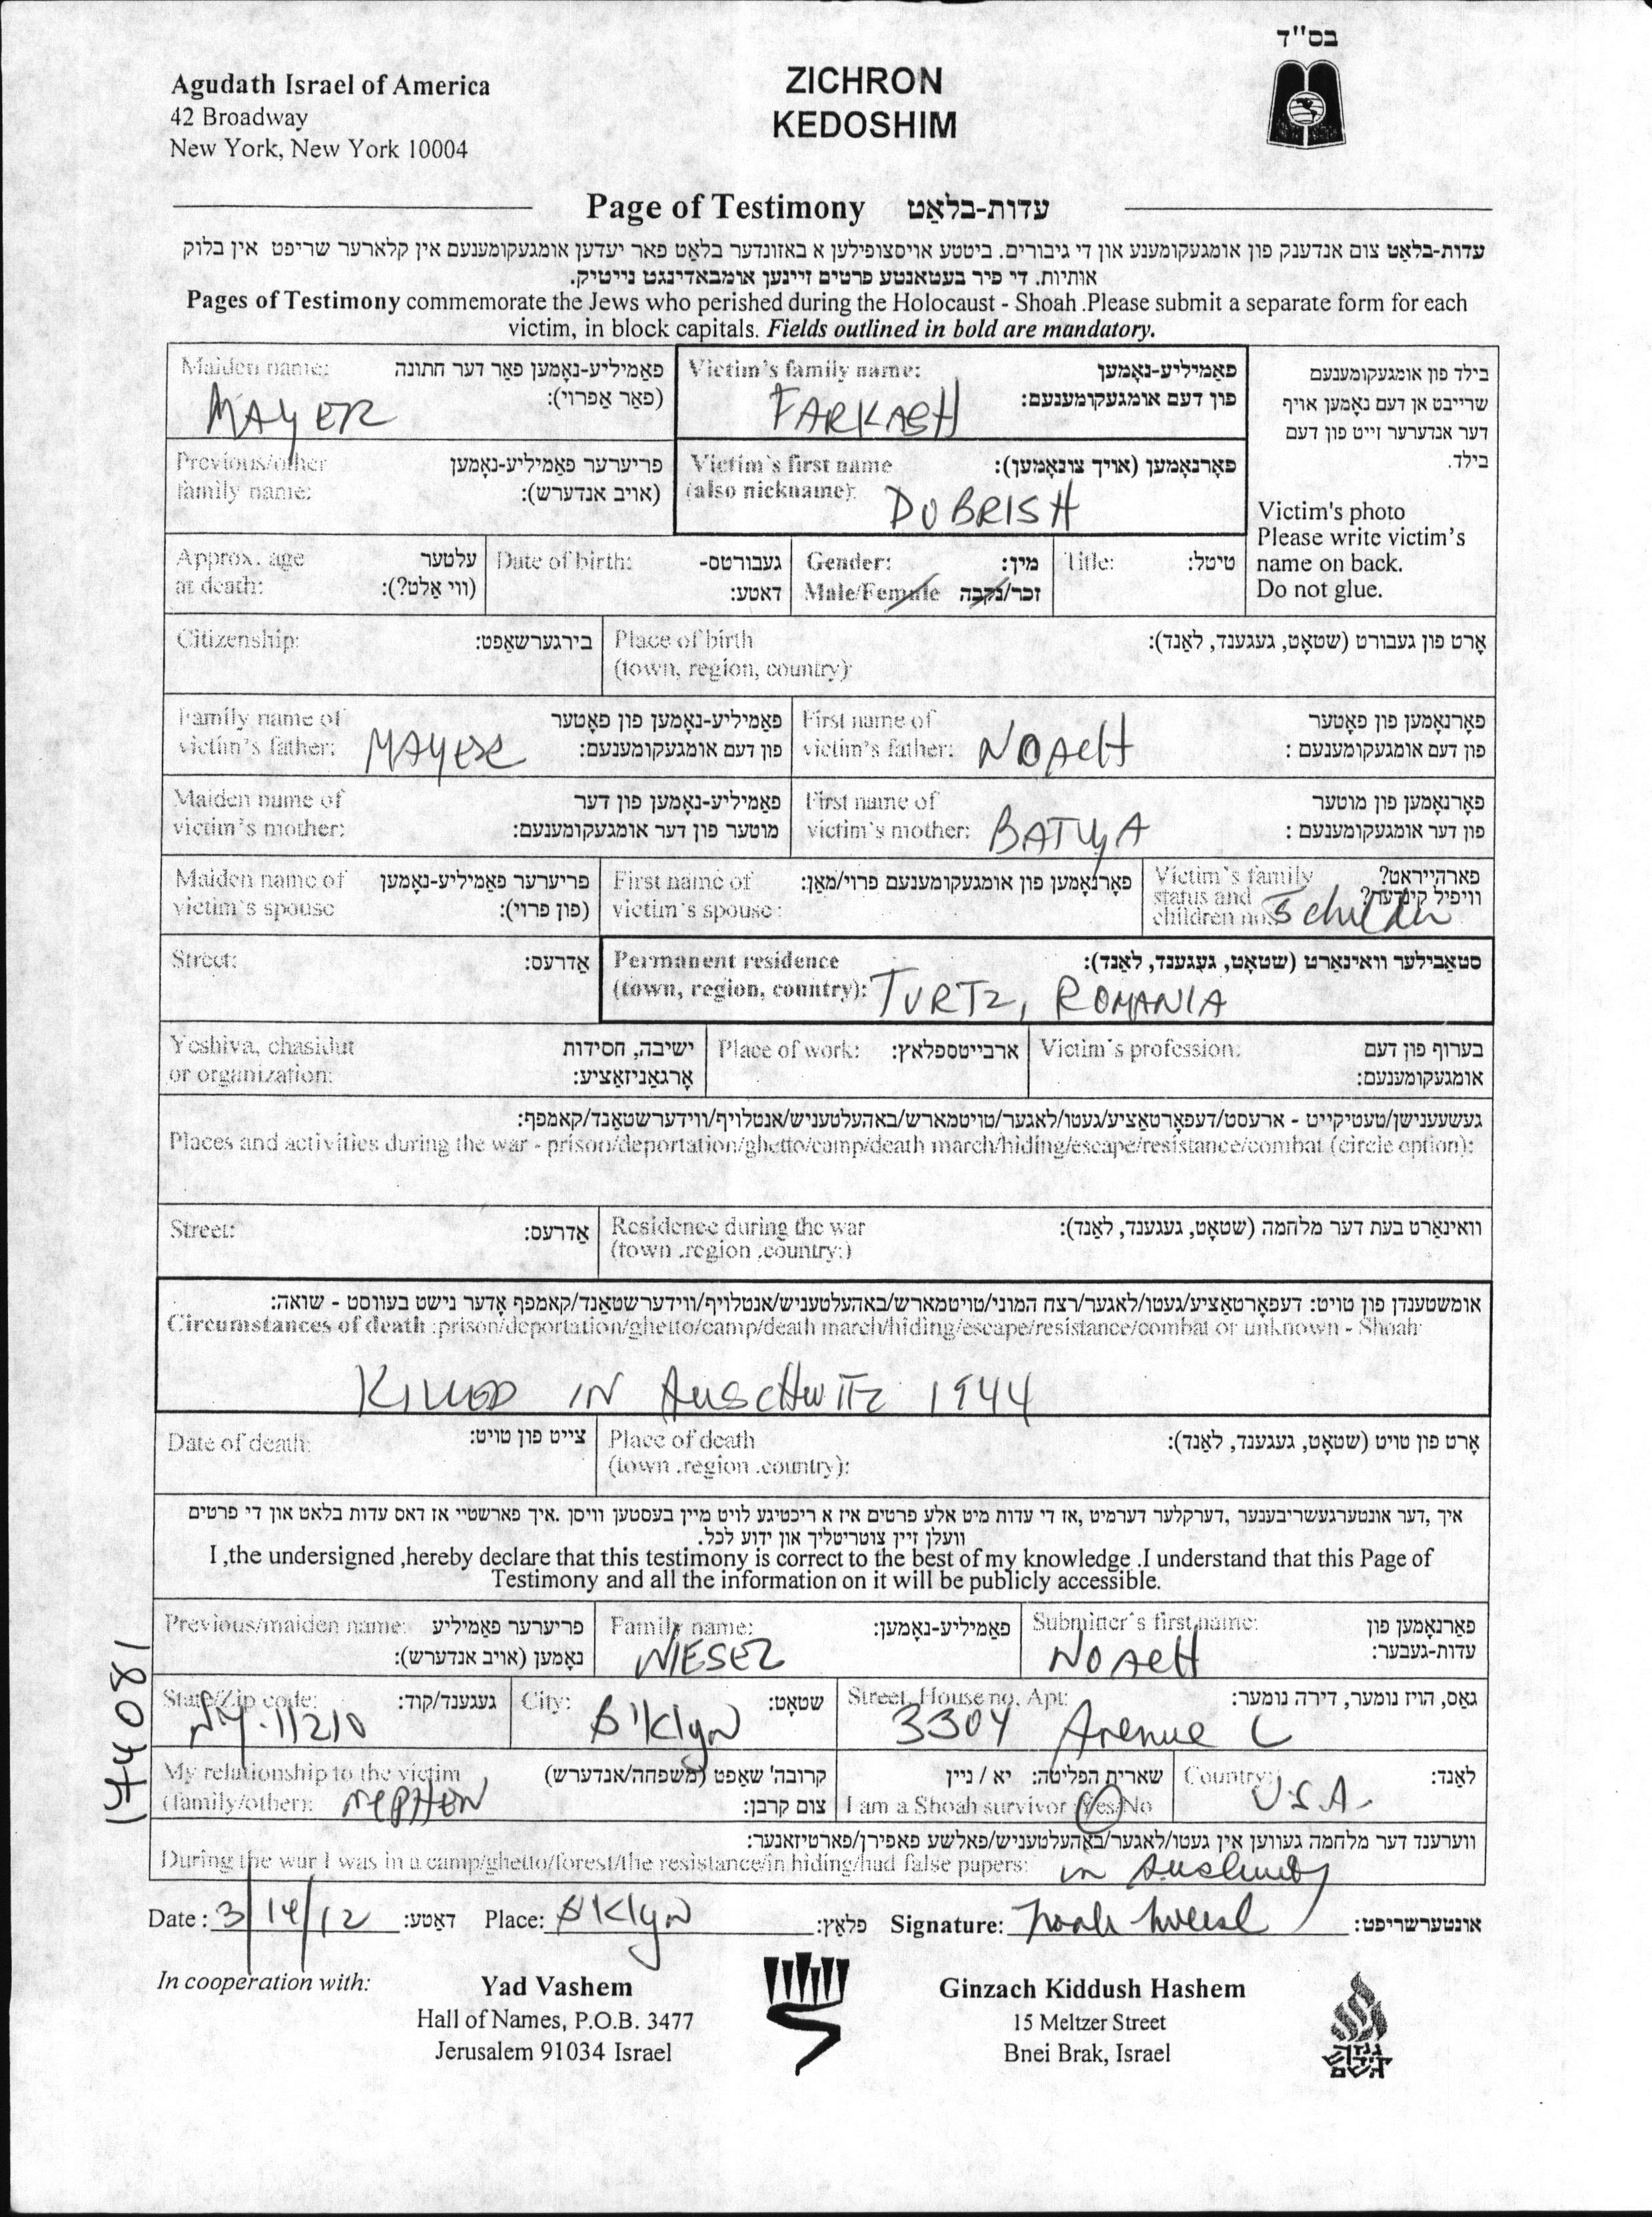 בס"ד
Agudath Israel of America
42 Broadway
New York, New York 10004
ZICHRON
KEDOSHIM
Page of Testimony עדות-בלאַט
עדות-בלאַט צום אנדענק פון אומגעקומענע און די גיבורים. ביטטע אויסצופילען א באזונדער בלאַט פאר יעדען אומגעקומענעם אין קלארער שריפט אין בלוק
אותיות. די פיר בעטאנטע פרטים זיינען אומבאדינגט נייטיק.
Pages of Testimony commemorate the Jews who perished during the Holocaust - Shoah .Please submit a separate form for each
victim, in block capitals. Fields outlined in bold are mandatory.
Maiden name: פאַמיליע-נאָמען פאַר דער חתונה
(פאַר אַפרוי):
MAYER
Victim's family name: פאַמיליע-נאָמען
פון דעם אומגעקומענעם:
FARKASH
בילד פון אומגעקומענעם
שרייבט אן דעם נאָמען אויף
דער אנדערער זייט פון דעם
בילד.
Victim's photo
Please write victim's
name on back.
Do not glue.
Previous/other פריערער פאַמיליע-נאָמען
family name: (אויב אנדערש):
Victim's first name פאָרנאָמען (אויך צונאָמען):
(also nickname):
DOBRISH
Approx. age עלטער
at death: (ווי אַלט?):
Date of birth: געבורטס-
דאטע:
Gender: מין:
Male/Female זכר/נקבה
Title: טיטל:
Citizenship: בירגערשאַפט:
Place of birth אָרט פון געבורט (שטאָט, געגענד, לאַנד):
(town, region, country):
Family name of פאַמיליע-נאָמען פון פאָטער
victim's father: MAYER פון דעם אומגעקומענעם:
First name of פאָרנאָמען פון פאָטער
victim's father: NOACH פון דעם אומגעקומענעם :
Maiden name of פאַמיליע-נאָמען פון דער
victim's mother: מוטער פון דער אומגעקומענעם:
First name of פאָרנאָמען פון מוטער
victim's mother: BATYA פון דער אומגעקומענעם :
Maiden name of פריערער פאַמיליע-נאָמען
victim's spouse (פון פרוי):
First name of פאָרנאָמען פון אומגעקומענעם פרוי/מאַן:
victim's spouse :
Victim's family פארהייראט?
status and וויפיל קינדער?
children no.:
Street: אַדרעס:
Permanent residence סטאַבילער וואינאַרט (שטאָט, געגענד, לאַנד):
(town, region, country): TURTZ, ROMANIA
Yeshiva, chasidut ישיבה, חסידות
or organization: אָרגאַניזאַציע:
Place of work: ארבייטספלאץ:
Victim's profession: בערוף פון דעם
אומגעקומענעם:
געשעענישן/טעטיקייט - ארעסט/דעפאָרטאַציע/געטו/לאגער/טויטמארש/באהעלטעניש/אנטלויף/ווידערשטאַנד/קאמפף:
Places and activities during the war - prison/deportation/ghetto/camp/death march/hiding/escape/resistance/combat (circle option):
Street: אַדרעס:
Residence during the war וואינאַרט בעת דער מלחמה (שטאָט, געגענד, לאַנד):
(town .region .country:)
אומשטענדן פון טויט: דעפאָרטאַציע/געטו/לאגער/רצח המוני/טויטמארש/באהעלטעניש/אנטלויף/ווידערשטאַנד/קאמפף אָדער נישט בעוווסט - שואה:
Circumstances of death :prison/deportation/ghetto/camp/death march/hiding/escape/resistance/combat or unknown - Shoah
KILLED IN AUSCHWITZ 1944
Date of death: צייט פון טויט:
Place of death אָרט פון טויט (שטאָט, געגענד, לאַנד):
(town .region .country):
איך ,דער אונטערגעשריבענער ,דערקלער דערמיט ,אז די עדות מיט אלע פרטים איז א ריכטיגע לויט מיין בעסטען וויסן .איך פארשטיי אז דאס עדות בלאט און די פרטים
וועלן זיין צוטריטליך און ידוע לכל.
I ,the undersigned ,hereby declare that this testimony is correct to the best of my knowledge .I understand that this Page of
Testimony and all the information on it will be publicly accessible.
Previous/maiden name: פריערער פאַמיליע
נאָמען (אויב אנדערש):
Family name: פאַמיליע-נאָמען:
WIESEL
Submitter's first name: פאַרנאָמען פון
עדות-געבער:
NOACH
State/Zip code: געגענד/קוד:
NY.11210
City: שטאָט:
B'Klyn
Street, House no, Apt: גאַס, הויז נומער, דירה נומער:
3304 Avenue L
My relationship to the victim קרובה' שאַפט (משפחה/אנדערש)
(family/other): NEPHEW צום קרבן:
שארית הפליטה: יא / ניין
I am a Shoah survivor :Yes/No
Country: לאַנד:
U.S.A.
ווערענד דער מלחמה געווען אין געטו/לאגער/באַהעלטעניש/פאלשע פאפירן/פארטיזאנער:
During the war I was in a camp/ghetto/forest/the resistance/in hiding/had false papers: in
Date : 3/14/12 דאַטע: Place: B'Klyn פלאַץ: Signature: Noah Wiesel אונטערשריפט:
In cooperation with:
Yad Vashem
Hall of Names, P.O.B. 3477
Jerusalem 91034 Israel
Ginzach Kiddush Hashem
15 Meltzer Street
Bnei Brak, Israel
גנזך
קידוש
השם
144081